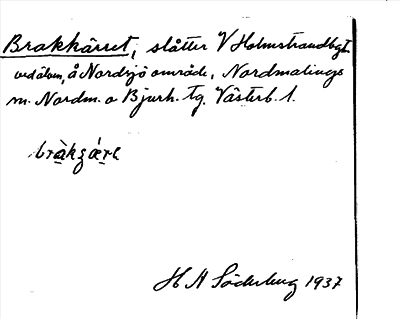 Brakkärret, slåtter V Holmstrandbgt
vedälven, å Nordsjö område, Nordmalings
sn. Nordm. o Bjurh. tg. Västerb. l.
bràkʒǽrɛ
H A Söderberg 1937